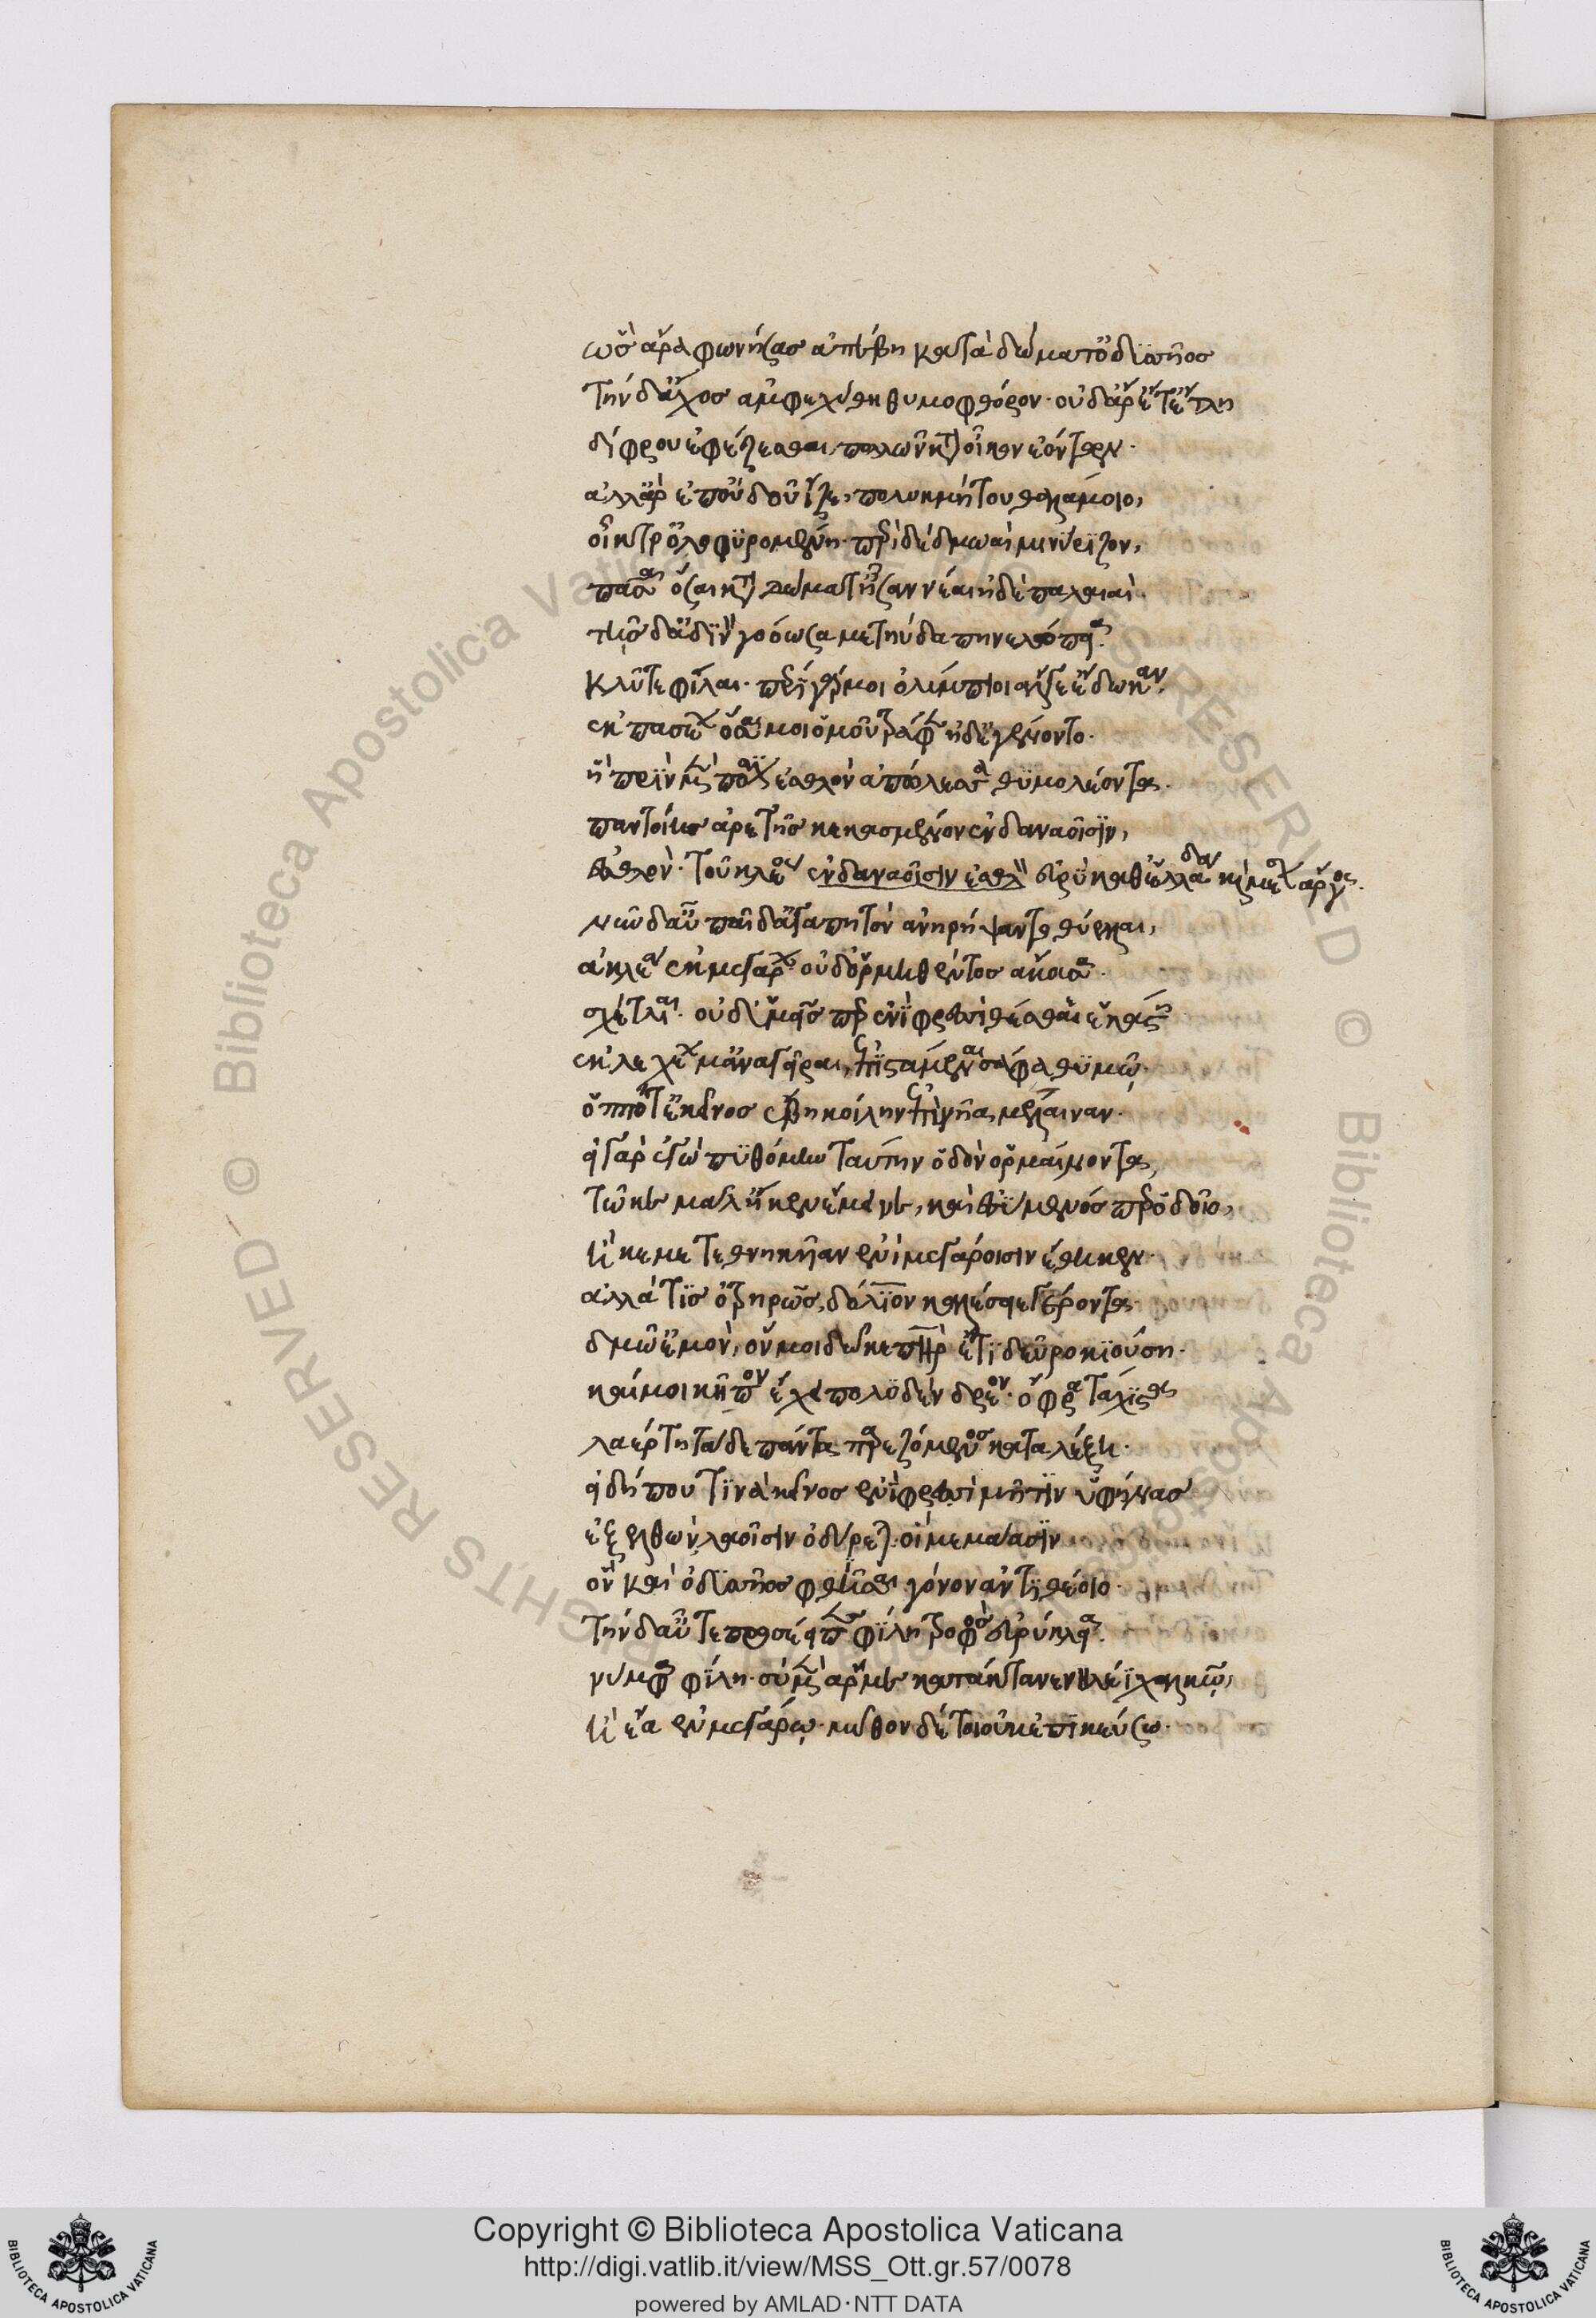 ὣς ἄρα φωνήσας ἀπέβη κατὰ δώματ' ὀδυσῆος
τὴν δ' ἄχος ἀμφεχύθη θυμοφθόρον· οὐδ' ἄρ' ἔτ' ἔτλη
δίφρου ἐφέζεσθαι, πολλῶν κατὰ οἶκον ἐόντων·
ἀλλ' ἄρ' ἐπ' οὐδοῦ ἷζε, πολυκμήτου θαλάμοιο,
οἴκτρ' ὀλοφυρομένη· περὶ δὲ δμωαὶ μινύριζον,
πᾶσαι ὅσαι κατὰ δώματ' ἦσαν νέαι ἠδὲ παλαιαί·
τῆς δ' ἁδινὸν γοόωσα μετηύδα πηνελόπεια·
κλῦτε φίλαι· περὶ γάρ μοι ὀλύμπιος ἄλγε' ἔδωκεν,
ἐκ πασέων ὅσσαι μοι ὁμοῦ τράφεν ἠδὲ γένοντο·
ἣ πρὶν μὲν πόσιν ἐσθλὸν ἀπώλεσα θυμολέοντα·
παντοίης ἀρετῆς κεκασμένον ἐν δαναοῖσιν,
ἐσθλόν· τοῦ κλέος ἐν δαναοῖσιν ἐσθλ εὐρὺ καθ' ἑλλάδα καὶ μέσον ἄργος.
νῦν δ' αὖ παῖδ' ἀγαπητὸν ἀνηρείψαντο θύελλαι,
ἀκλέα ἐκ μεγάρων· οὐδ' ὁρμηθέντος ἄκουσα·
σχέτλιαι· οὐδ' ὑμεῖς περ ἐνὶ φρεσὶ θέσθε ἑκάστη
ἐκ λεχέων μ' ἀνεγεῖραι, ἐπιστάμεναι σάφα θυμῷ·
ὁππότ' ἐκεῖνος ἔβη κοίλην ἐπὶ νῆα μέλαιναν·
εἰ γὰρ ἐγὼ πυθόμην ταύτην ὁδὸν ὁρμαίνοντα,
τῷ κε μάλ' ἤ κεν ἔμεινε, καὶ ἐσσύμενός περ ὁδοῖο,
ἤ κέ με τεθνηκυῖαν ἐνὶ μεγάροισιν ἔλειπεν·
ἀλλά τις ὀτρηρῶς, δολίον καλέσειε γέροντα·
δμῶ' ἐμόν, ὅν μοι δῶκε πατὴρ ἔτι δεῦρο κιούσῃ·
καί μοι κῆπον ἔχει πολυδένδρεον· ὄφρα τάχιστα
λαέρτῃ τάδε πάντα παρεζόμενος καταλέξῃ·
εἰ δή που τινὰ κεῖνος ἐνὶ φρεσὶ μῆτιν ὑφήνας
ἐξελθὼν λαοῖσιν ὀδύρεται· οἳ μεμάασιν
ὃν καὶ ὀδυσῆος φθῖσαι γόνον ἀντιθέοιο·
τὴν δ' αὖτε προσέειπε φίλη τροφὸς εὐρύκλεια·
νύμφα φίλη· σὺ μὲν ἄρ με κατάκτανε νηλέϊ χαλκῷ,
ἢ ἔα ἐν μεγάρῳ· μῦθον δέ τοι οὐκ ἐπικεύσω·
Copyright © Biblioteca Apostolica Vaticana
http://digi.vatlib.it/view/MSS_Ott.gr.57/0078
powered by AMLAD·NTT DATA